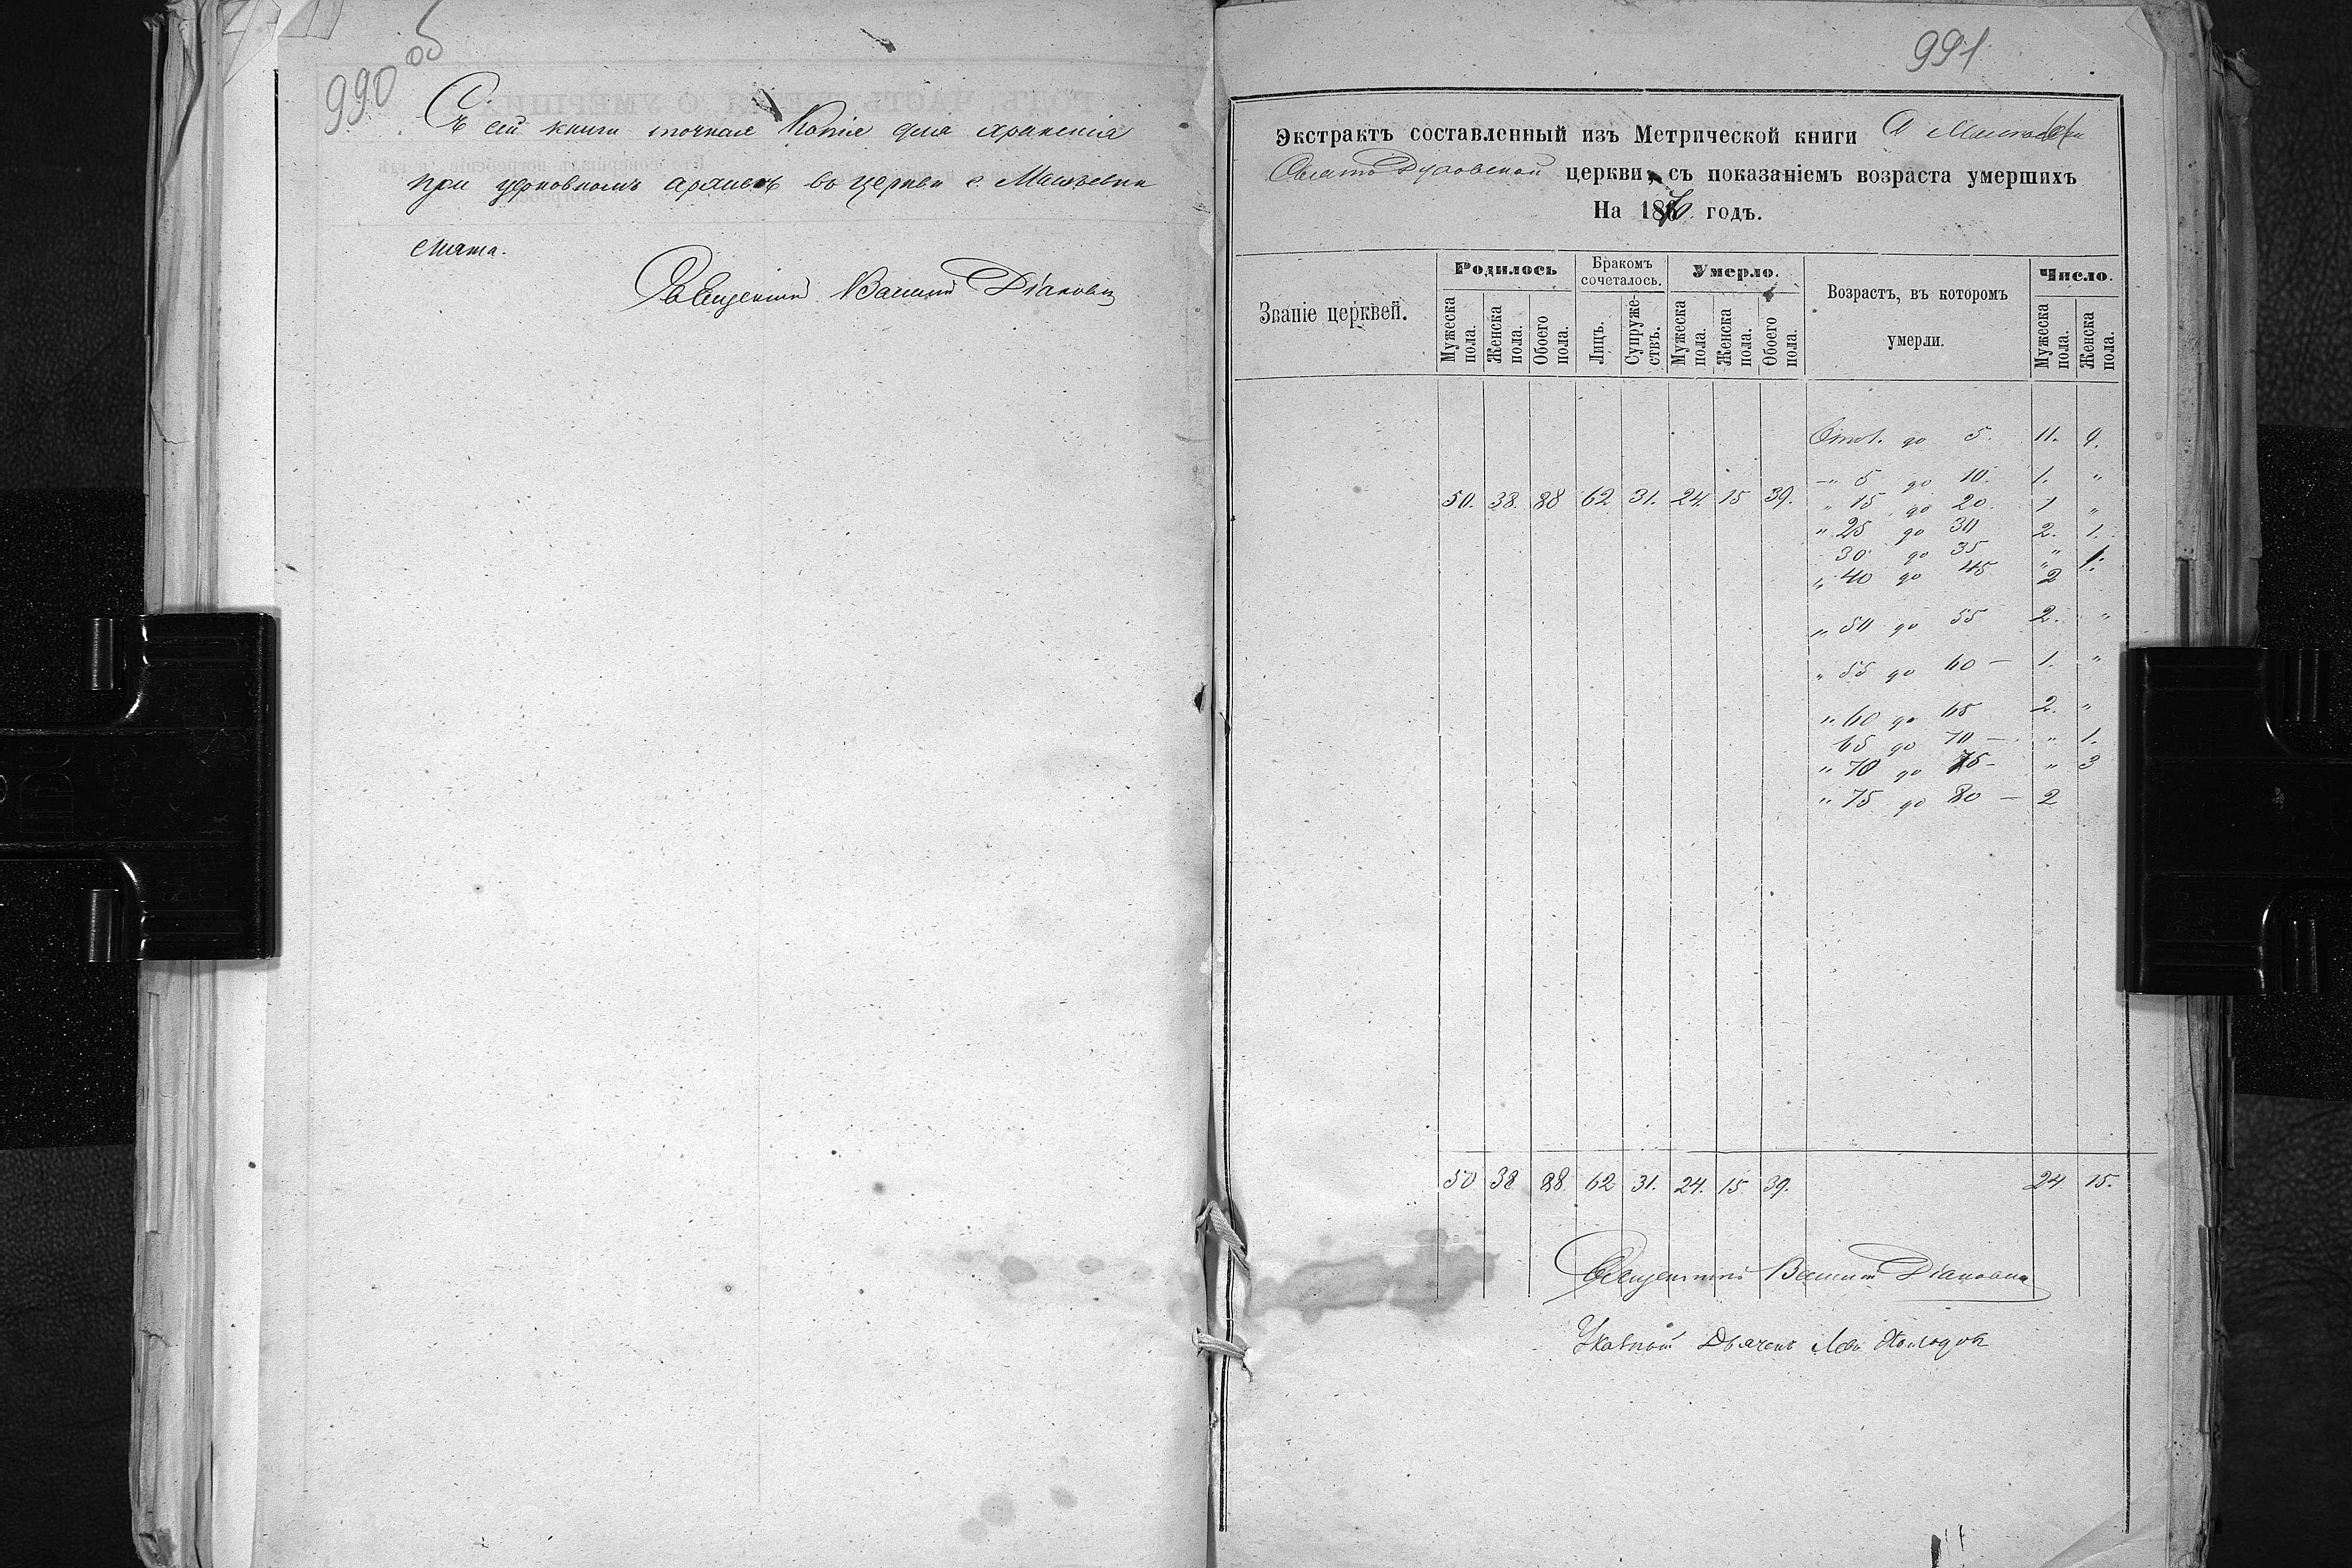 990 об
Съ сей книги точная Копія для храненія
при церковномъ архивѣ въ церкви с. Машевки
снята.
Священникъ Василій Діаковъ
991
Экстрактъ составленный изъ Метрической книги С.
Свято Духовской церкви, съ показаніемъ возраста умершихъ
На 1870 годъ.
Званіе церквей.
Родилось
Мужеска пола.
Женска пола.
Обоего пола.
Бракомъ сочеталось.
Лицъ.
Супружествъ.
Умерло.
Мужеска пола.
Женска пола.
Обоего пола.
Возрастъ, въ которомъ умерли.
Число.
Мужеска пола.
Женска пола.
От 1. до 5. 11. 9.
—" 5 до 10. 1. "
50. 38. 88 62 31. 24. 15 39. " 15 до 20. 1 "
" 25 до 30 2. 1.
30 до 35 " 1.
" 40 до 45 2
" 50 до 55 2. "
" 55 до 60 — 1. "
" 60 до 65 2. "
65 до 70 — " 1.
" 70 до 75 - " 3
" 75 до 80 — 2
50 38 88 62 31. 24. 15 39. 24 15.
Священникъ Василій Діаковъ
Указной Дьячекъ Левъ